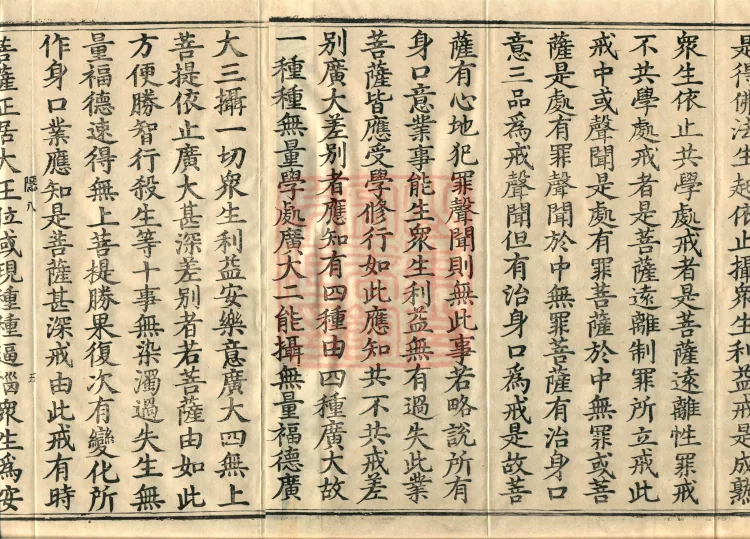 是得佛法生起依止攝衆生利益戒是成熟
衆生依止共學處戒者是菩薩遠離性罪戒
不共學處戒者是菩薩遠離制罪所立戒此
戒中或聲聞是處有罪菩薩於中無罪或菩
薩是處有罪聲聞於中無罪菩薩有治身口
意三品爲戒聲聞但有治身口爲戒是故菩
薩有心地犯罪聲聞則無此事若略說所有
身口意業事能生衆生利益無有過失此業
菩薩皆應受學修行如此應知共不共戒差
別廣大差別者應知有四種由四種廣大故
一種種無量學處廣大二能攝無量福德廣
大三攝一切衆生利益安樂意廣大四無上
菩提依止廣大甚深差別者若菩薩由如此
方便勝智行殺生等十事無染濁過失生無
量福德速得無上菩提勝果復次有變化所
作身口業應知是菩薩甚深戒由此戒有時
隠八
五
菩薩正居大王位或現種種逼惱衆生爲安